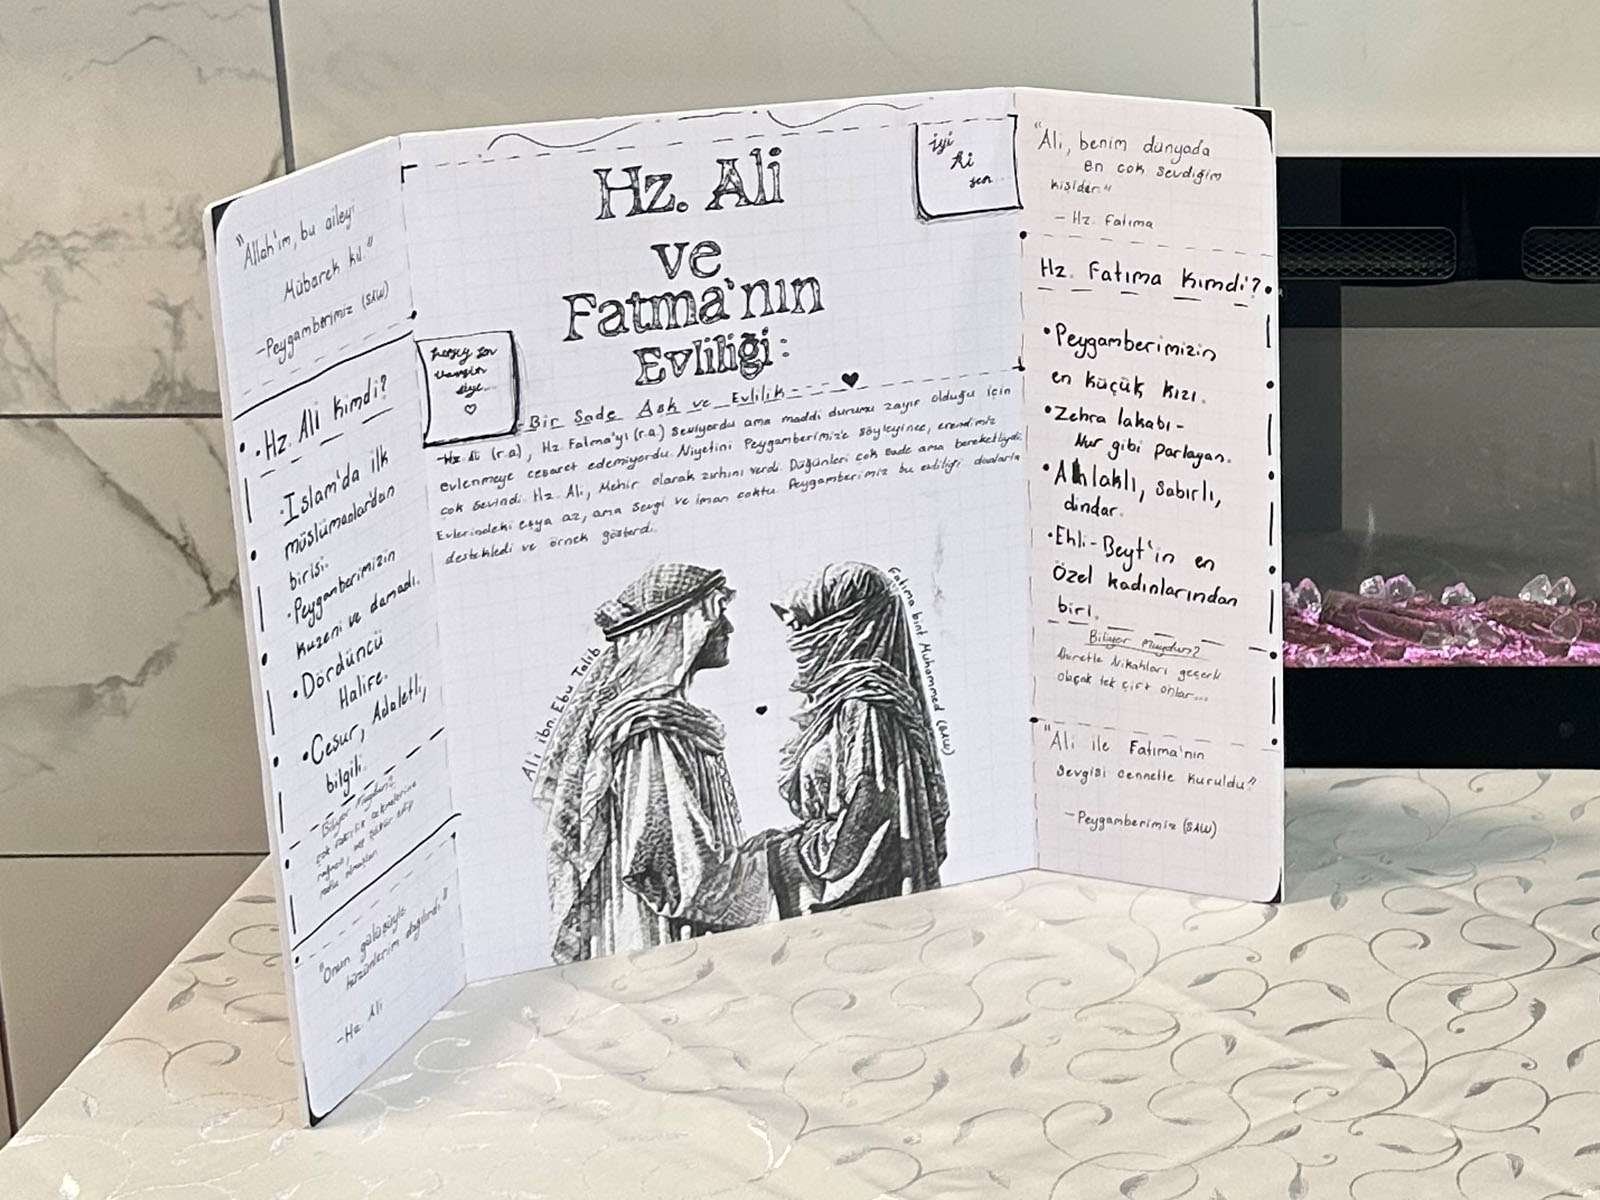 "Allah'ım, bu aileyi
Mübarek kıl."
-Peygamberimiz (SAW)
Hz. Ali kimdi?
İslam'da ilk
müslümanlardan
birisi.
Peygamberimizin
kuzeni ve damadı.
Dördüncü
Halife.
Cesur, Adaletli,
bilgili.
"Onun gülüşüyle
hüzünlerim dağılırdı."
-Hz. Ali
Hz. Ali
ve
Fatma'nın
Evliliği:
iyi
ki
sen
Bir Sade Aşk ve Evlilik
Hz. Ali (r.a), Hz. Fatma'yı (r.a.) seviyordu ama maddi durumu zayıf olduğu için
evlenmeye cesaret edemiyordu. Niyetini Peygamberimiz'e söyleyince, efendimiz
çok sevindi. Hz. Ali, Mehir olarak zırhını verdi. Düğünleri çok sade ama bereketliydi.
Evlerindeki eşya az, ama sevgi ve iman çoktu. Peygamberimiz bu evliliği dualarla
destekledi ve örnek gösterdi.
Ali ibn. Ebu Talib
Fatıma bint Muhammed (SAW)
"Ali, benim dünyada
en çok sevdiğim
kişidir."
- Hz. Fatıma
Hz. Fatıma kimdi?
Peygamberimizin
en küçük kızı.
Zehra lakabı-
Nur gibi parlayan.
Ahlaklı, Sabırlı,
dindar.
Ehli-Beyt'in en
özel kadınlarından
biri.
Biliyor muydun?
Nikahları
tek çift onlar...
"Ali ile Fatıma'nın
sevgisi cennette kuruldu"
-Peygamberimiz (SAW)